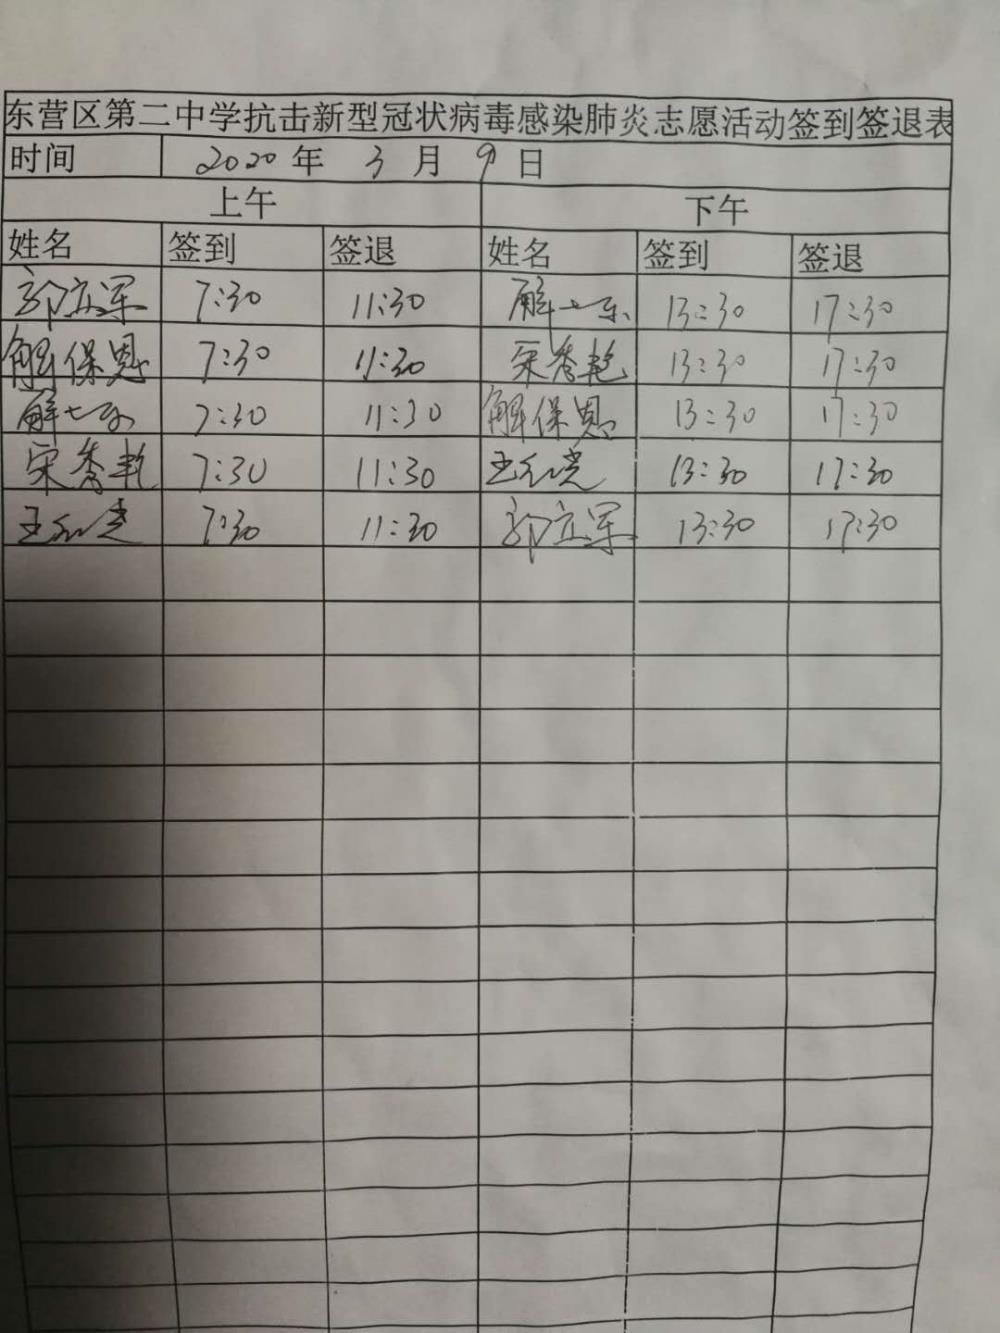 东营区第二中学抗击新型冠状病毒感染肺炎志愿活动签到签退表
时间 2020年 3月 9日
上午 下午
姓名 签到 签退 姓名 签到 签退
郭立军 7:30 11:30 解 13:30 17:30
解保恩 7:30 11:30 宋秀艳 13:30 17:30
解 7:30 11:30 解保恩 13:30 17:30
宋秀艳 7:30 11:30 王 13:30 17:30
王 7:30 11:30 郭立军 13:30 17:30